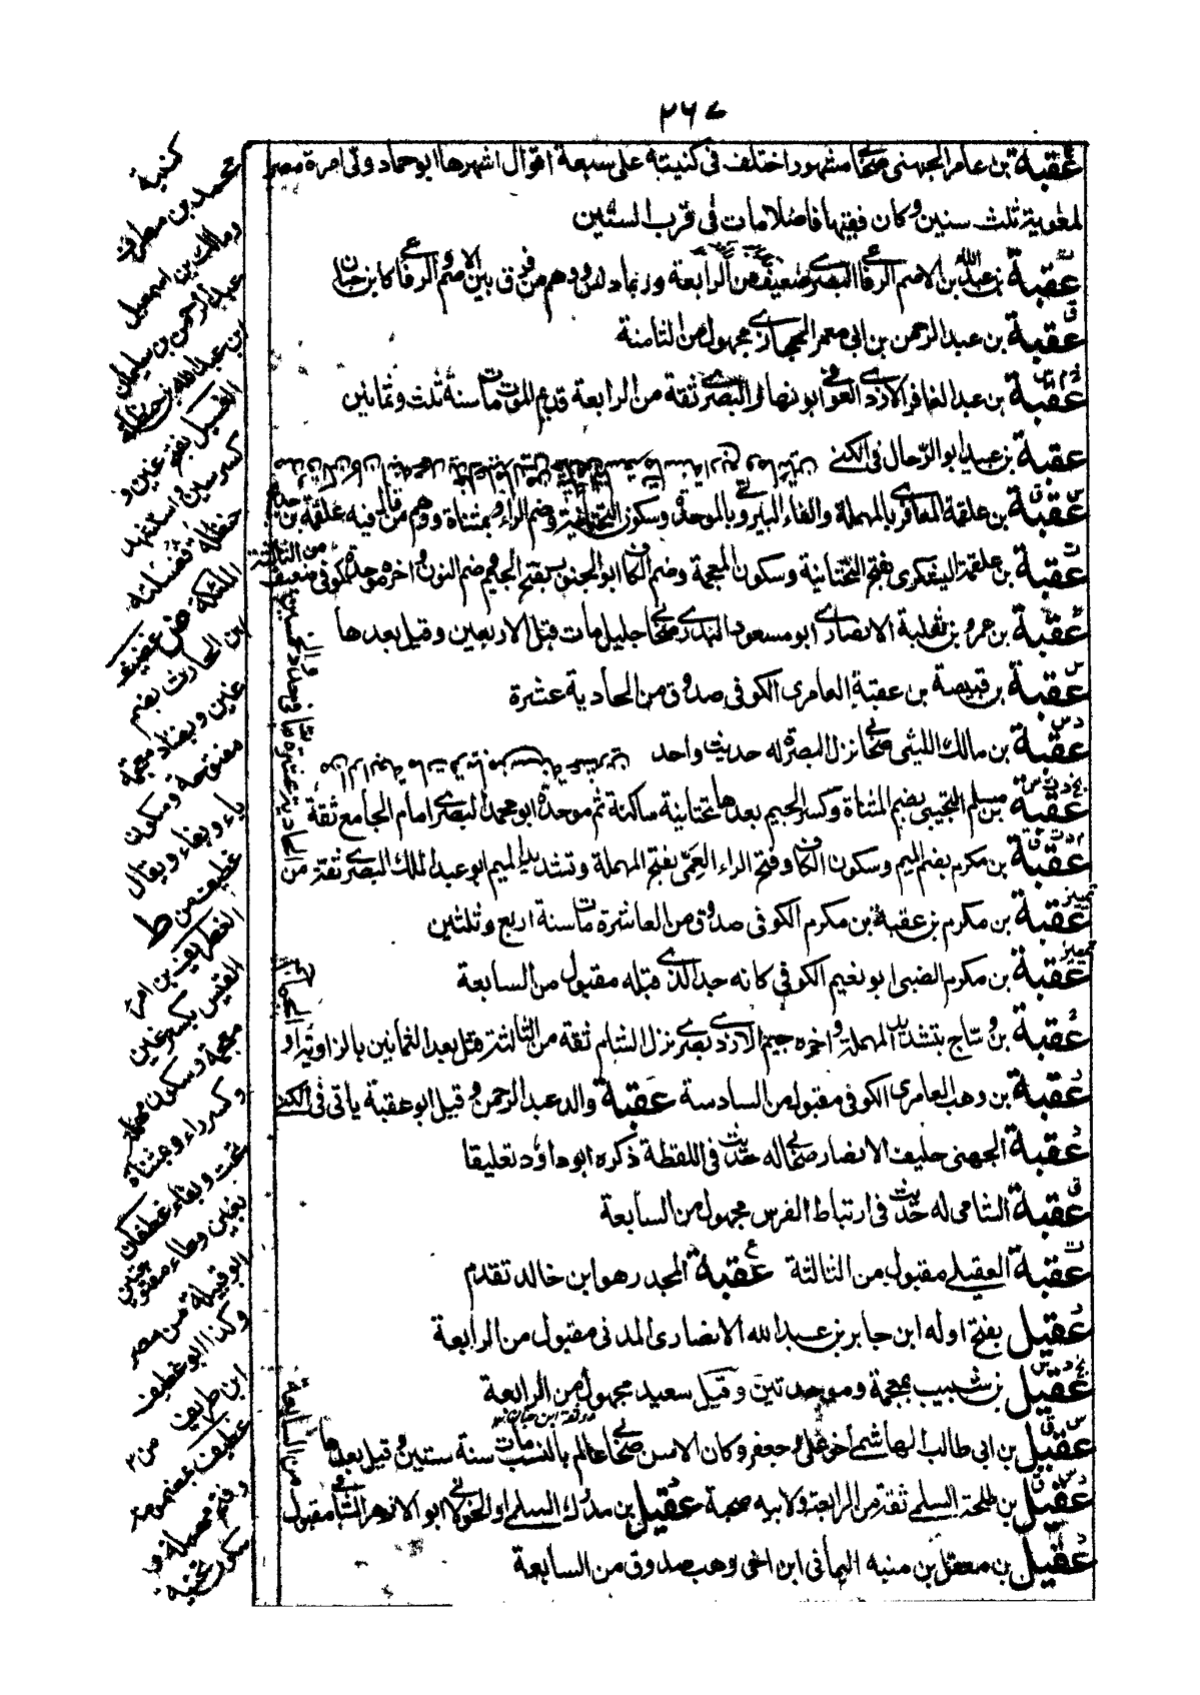 ٢٦٧
عقبة بن عامر الجهنى صحابى مشهور اختلف فى كنيته على سبعة اقوال اشهرها ابو حماد ولى امرة مصر
لمعوية ثلث سنين وكان فقيها فاضلا مات فى قرب الستين
عقبة بن عبد الله بن الاصم الرفاعى البصرى ضعيف من الرابعة وربما دلس ووهم من فرق بين الاصم والرفاعى كابن حبان
عقبة بن عبد الرحمن بن ابى معمر الحجازى مجهول من الثامنة
عقبة بن عبد الغافر الازدى العوذى ابو نهار البصرى ثقة من الرابعة قديم الموت مات سنة ثلث وثمانين
عقبة بن عبيد ابو الرحال فى الكنى
عقبة بن علقمة المعافرى بالمهملة والفاء البيروتى بالموحدة وسكون التحتانية وضم الراء بمثناة ووهم من قال فيه علقمة بن حديج
عقبة بن علقمة اليشكرى بفتح التحتانية وسكون المعجمة وضم الكاف ابو الجنوب بفتح الجيم وضم النون واخره موحدة كوفى ضعيف من الثالثة
عقبة بن عمرو بن ثعلبة الانصارى ابو مسعود البدرى صحابى جليل مات قبل الاربعين وقيل بعدها
عقبة بن قبيصة بن عقبة العامرى الكوفى صدوق من الحادية عشرة
عقبة بن مالك الليثى صحابى نزل البصرة له حديث واحد
عقبة بن مسلم التجيبى بضم المثناة وكسر الجيم بعدها تحتانية ساكنة ثم موحدة ابو محمد البصرى امام الجامع ثقة
عقبة بن مكرم بضم الميم وسكون الكاف وفتح الراء العمى بفتح المهملة وتشديد الميم ابو عبد الملك البصرى ثقة من
عقبة بن مكرم بن عقبة بن مكرم الكوفى صدوق من العاشرة مات سنة اربع وثلثين
عقبة بن مكرم الضبى ابو نعيم الكوفى كانه جد الذى قبله مقبول من السابعة
عقبة بن وساج بتشديد المهملة واخره جيم الازدى بصرى نزل الشام ثقة من الثالثة قتل بعد الثمانين بالزاوية او الجماجم
عقبة بن وهب العامرى الكوفى مقبول من السادسة عقبة والد عبد الرحمن وقيل ابو عقبة ياتى فى الكنى
عقبة الجهنى حليف الانصار صحابى له حديث فى اللقطة ذكره ابو داود تعليقا
عقبة الشامى له حديث فى ارتباط الفرس مجهول من السابعة
عقبة العقيلى مقبول من الثالثة عقبة المجدر هو ابن خالد تقدم
عقيل بفتح اوله ابن جابر بن عبد الله الانصارى المدنى مقبول من الرابعة
عقيل بن شبيب بمعجمة وموحدتين وقيل سعيد مجهول من الرابعة
عقيل بن ابى طالب الهاشمى اخو على وجعفر وكان الاسن صحابى عالم بالنسب مات سنة ستين وقيل بعدها
عقيل بن طلحة السلمى ثقة من الرابعة ولابيه صحبة عقيل بن مدرك السلمى او الخولانى ابو الازهر الشامى مقبول
من السابعة
عقيل بن معقل بن منبه اليمانى ابن اخى وهب صدوق من السابعة
كنية
محمد بن مطرف
ومالك بن اسمعيل
عبد الرحمن بن سليمان
ابن عبد الله بن حنظلة
الغسيل بفتح غين و
كسر سين
ابن الحارث بضم
غين وبضاد معجمة
مفتوحة وسكون
ياء وبفاء ويقال
غطيف من ط
الغطريف بن امرئ
القيس بكسر غين
معجمة وسكون مهملة
وكسر راء وبمثناة
تحت وبفاء غطفان
بغين وطاء مفتوحتين
ابو قبيلة من مصر
وكذا ابو غطيف
ابن طريف
غطيف بمضمومة
وفتح مهملة و
سكون تحتية